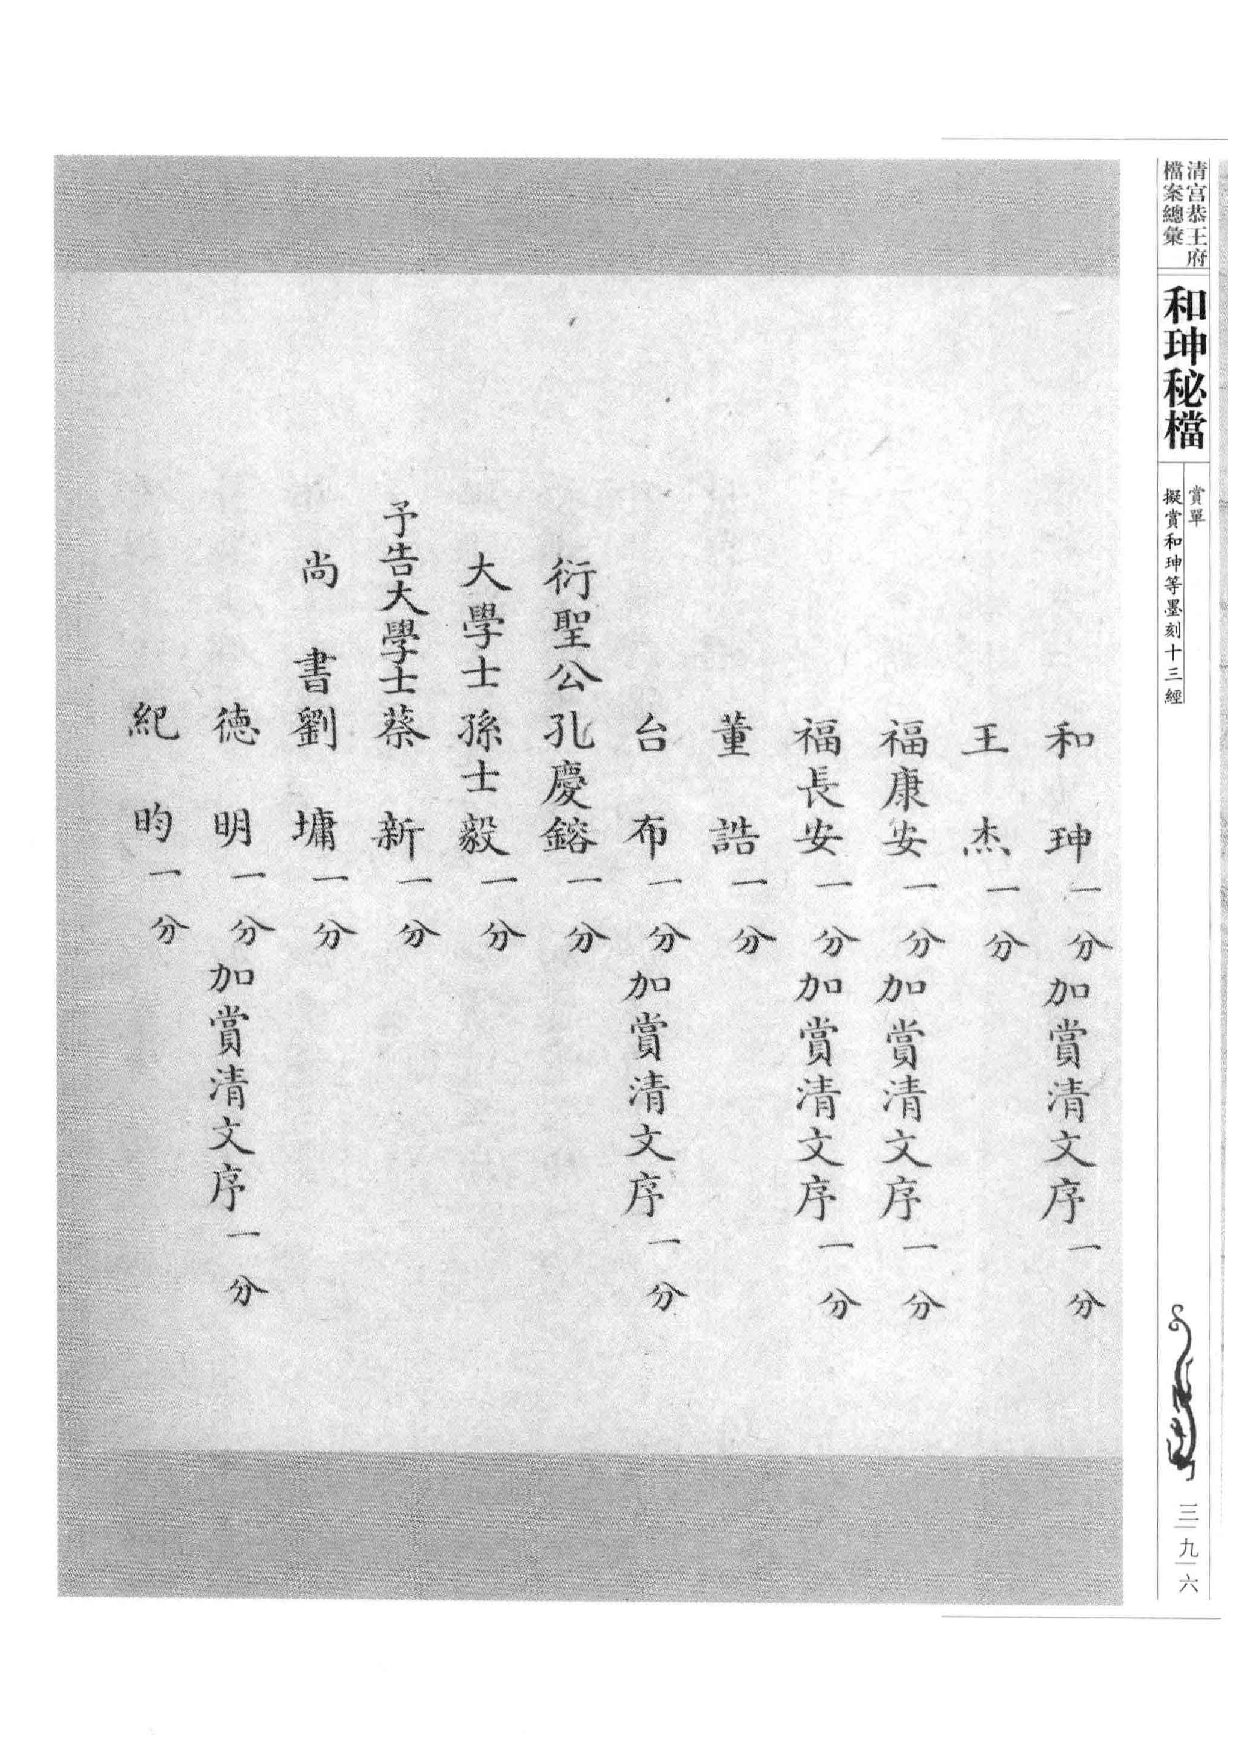 清宮恭王府
檔案總彙
和珅秘檔
賞單
擬賞和珅等墨刻十三經
三九六
和珅一分加賞清文序一分
王杰一分
福康安一分加賞清文序一分
福長安一分加賞清文序一分
董誥一分
台布一分加賞清文序一分
衍聖公孔慶鎔一分
大學士孫士毅一分
予告大學士蔡新一分
尚書劉墉一分
德明一分加賞清文序一分
紀昀一分